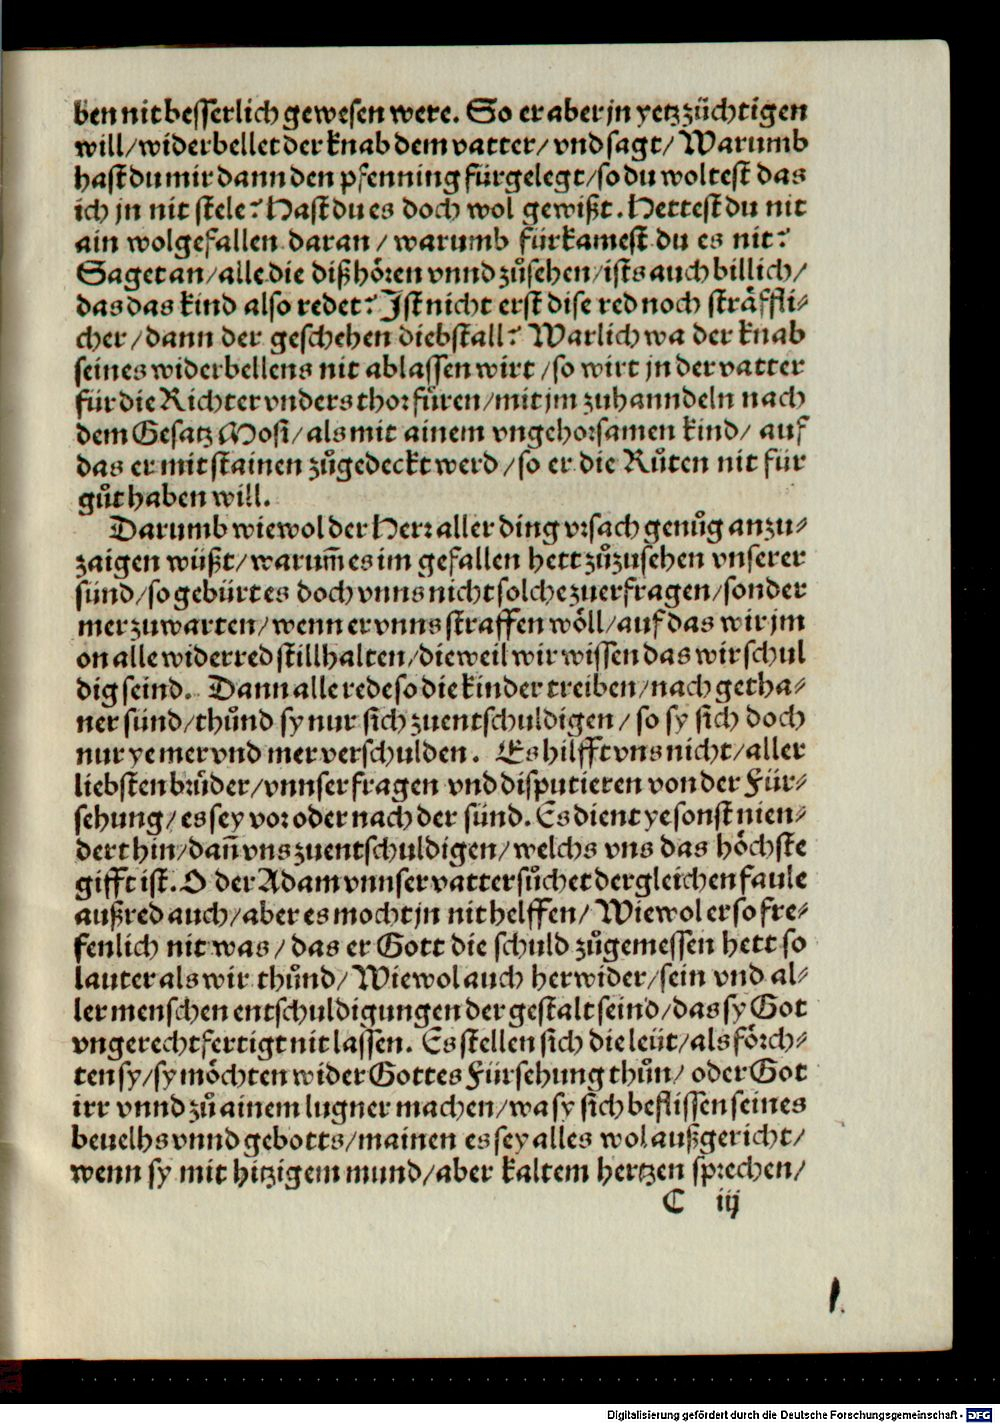 ben nit besserlich gewesen were. So er aber jn yetz züchtigen
will/ widerbellet der knab dem vatter/ vnd sagt/ Warumb
hast du mir dann den pfenning fürgelegt/ so du woltest das
ich jn nit stele? Hast du es doch wol gewißt. Hettest du nit
ain wolgefallen daran/ warumb fürkamest du es nit?
Saget an/ alle die diß hören vnnd zůsehen/ ists auch billich/
das das kind also redet? Ist nicht erst dise red noch sträffli⸗
cher/ dann der geschehen diebstall? Warlich wa der knab
seines widerbellens nit ablassen wirt/ so wirt jn der vatter
für die Richter vnders thor fůren/ mit jm zuhanndeln nach
dem Gesatz Mosi/ als mit ainem vngehorsamen kind/ auf
das er mit stainen zůgedeckt werd/ so er die Růten nit für
gůt haben will.
Darumb wiewol der Herr aller ding vrsach genůg anzu⸗
zaigen wüßt/ warum̄ es im gefallen hett zůzusehen vnserer
sünd/ so gebürt es doch vnns nicht solche zuerfragen/ sonder
mer zuwarten/ wenn er vnns straffen wöll/ auf das wir jm
on alle widerred still halten/ dieweil wir wissen das wir schul
dig seind. Dann alle rede so die kinder treiben/ nach getha⸗
ner sünd/ thůnd sy nur sich zuentschuldigen/ so sy sich doch
nur ye mer vnd mer verschulden. Es hilfft vns nicht/ aller
liebsten brůder/ vnnser fragen vnd disputieren von der Für⸗
sehung/ es sey vor oder nach der sünd. Es dient ye sonst nien⸗
dert hin/ dañ vns zuentschuldigen/ welchs vns das höchste
gifft ist. O der Adam vnnser vatter sůchet dergleichen faule
außred auch/ aber es mocht jn nit helffen/ Wiewol er so fre⸗
fenlich nit was/ das er Gott die schuld zůgemessen hett so
lauter als wir thůnd/ Wiewol auch herwider/ sein vnd al⸗
ler menschen entschuldigungen der gestalt seind/ das sy Got
vngerechtfertigt nit lassen. Es stellen sich die leüt/ als förch⸗
ten sy/ sy möchten wider Gottes Fürsehung thůn/ oder Got
irr vnnd zů ainem lugner machen/ wa sy sich beflissen seines
beuelhs vnnd gebotts/ mainen es sey alles wol außgericht/
wenn sy mit hitzigem mund/ aber kaltem hertzen sprechen/
C iij
Digitalisierung gefördert durch die Deutsche Forschungsgemeinschaft - DFG